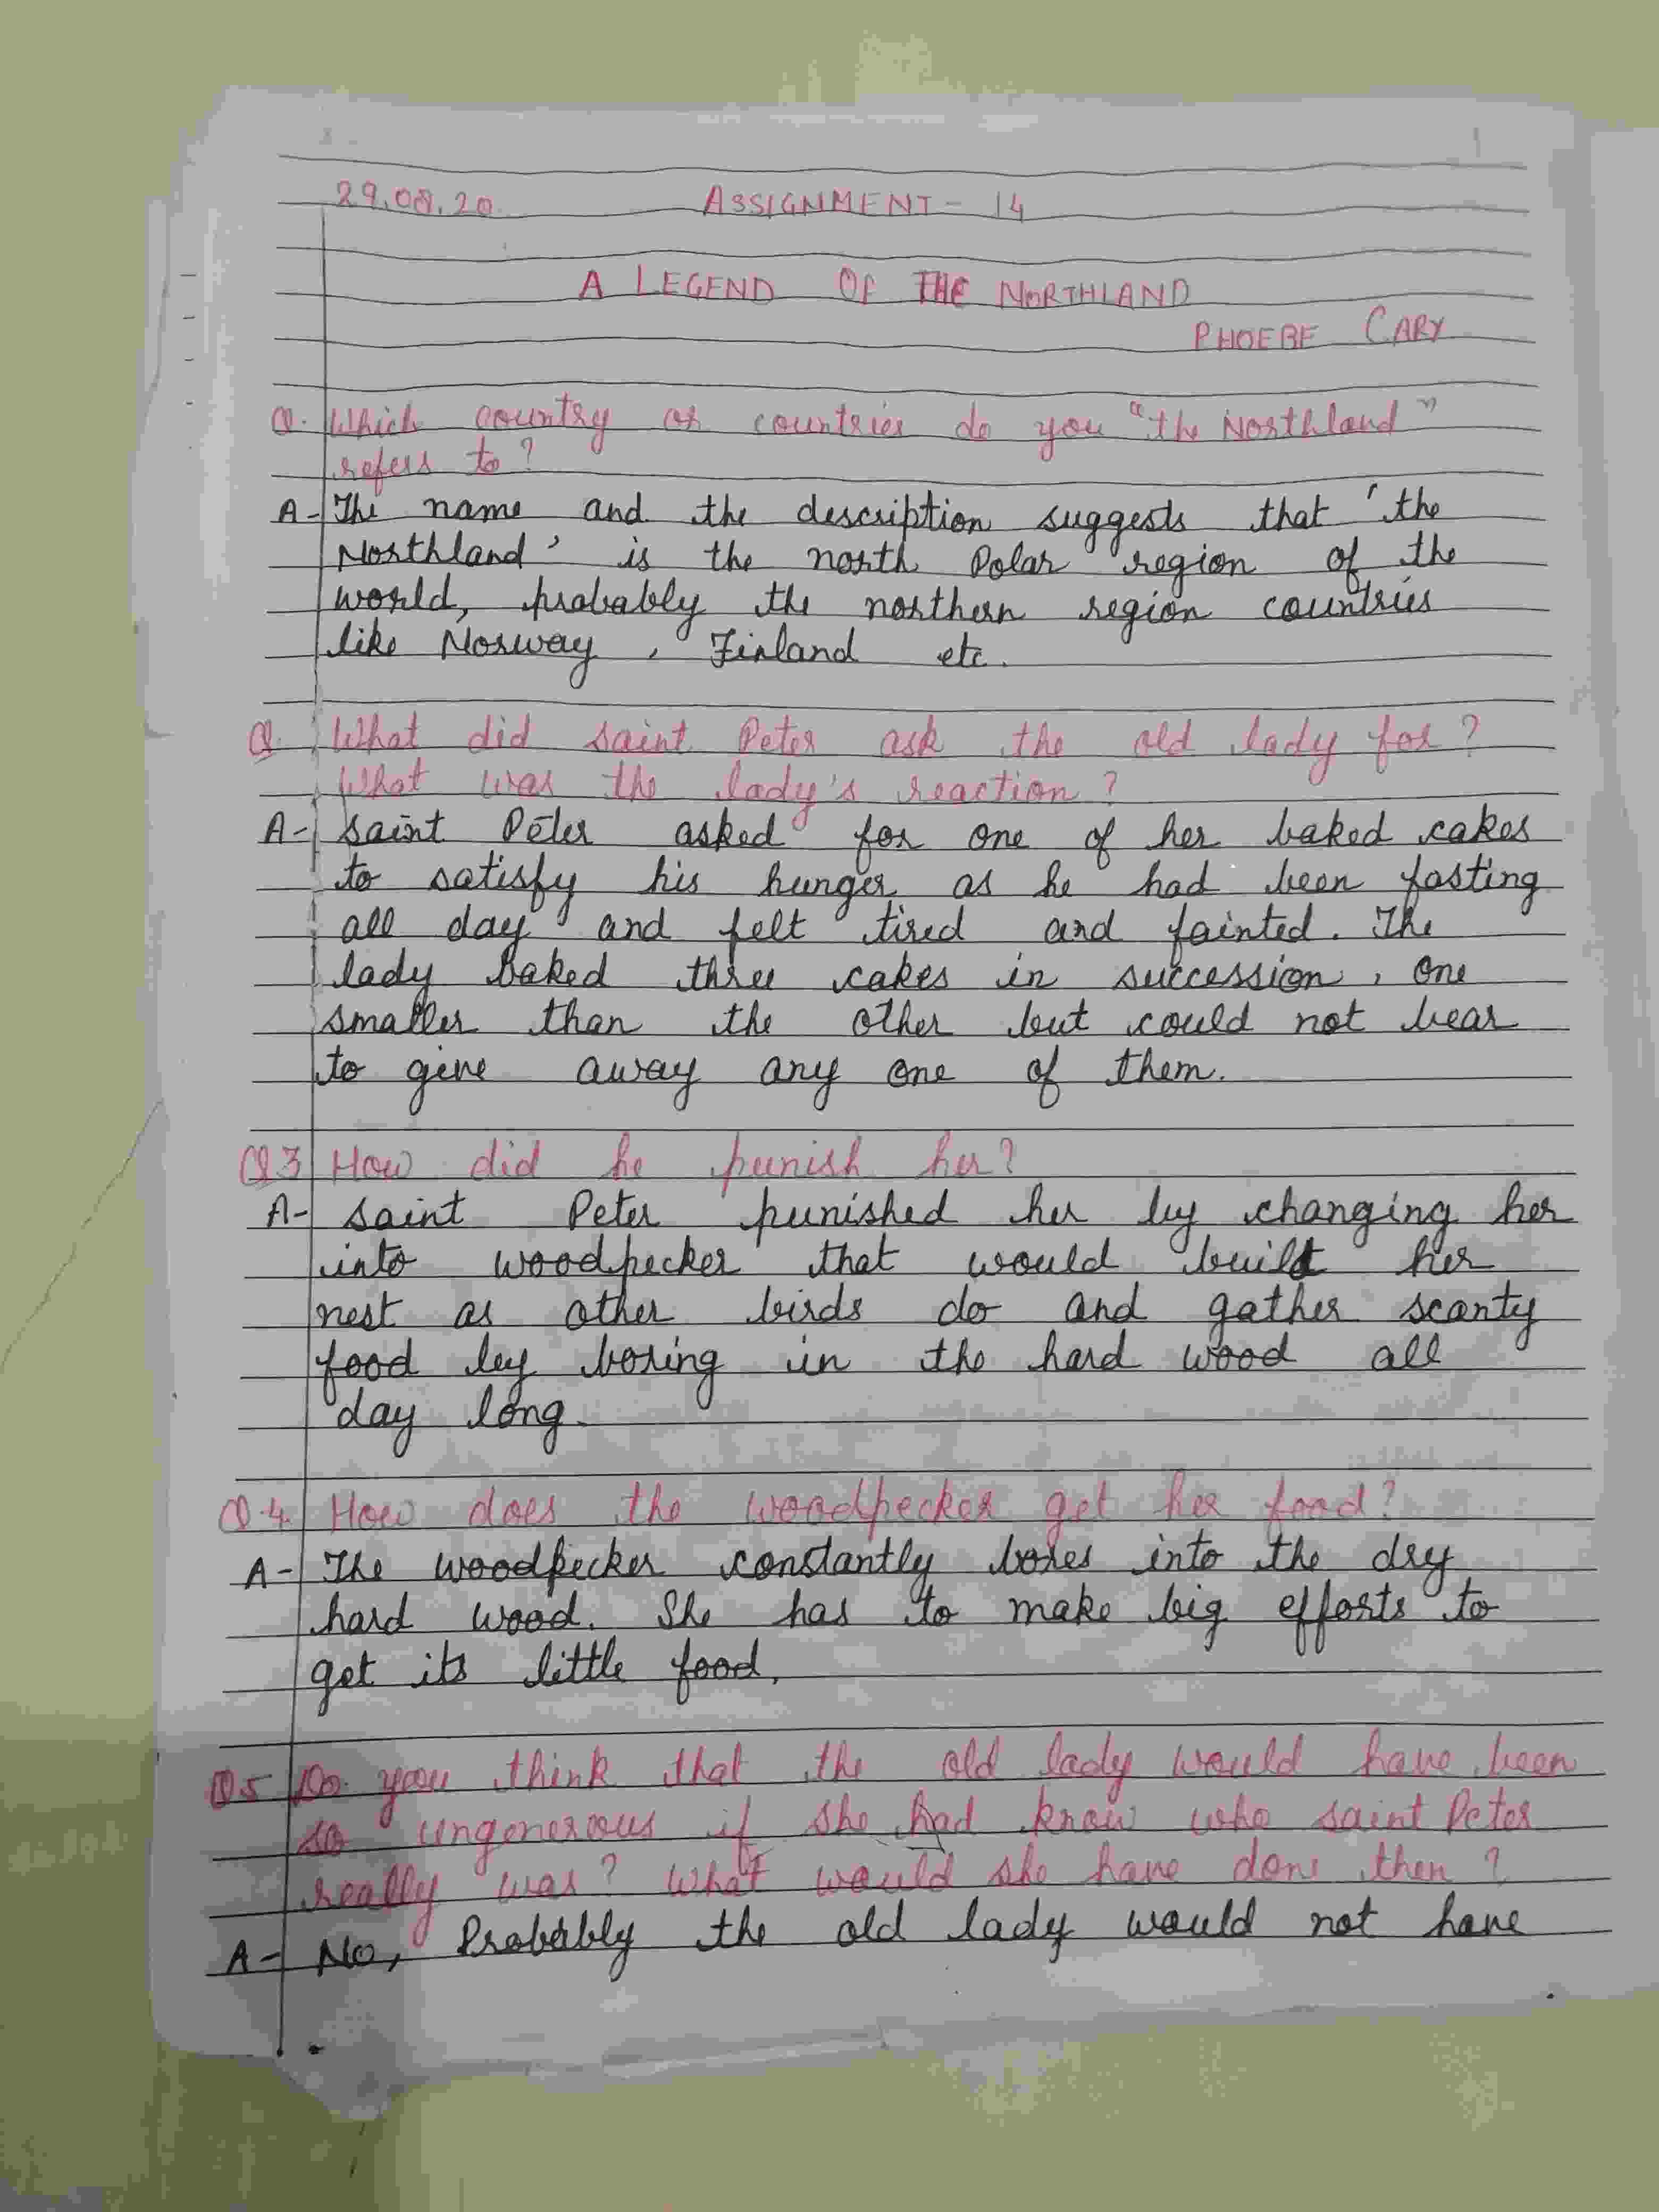 29.08.20 ASSIGNMENT - 14
A LEGEND OF THE NORTHLAND
PHOEBE CARY
Q. Which country or countries do you "the Northland"
refers to?
A- The name and the description suggests that 'the
Northland' is the north Polar region of the
world, probably the northern region countries
like Norway, Finland etc.
Q. What did saint Peter ask the old lady for?
What was the lady's reaction?
A- Saint Peter asked for one of her baked cakes
to satisfy his hunger as he had been fasting
all day and felt tired and fainted. The
lady baked three cakes in succession, one
smaller than the other but could not bear
to give away any one of them.
Q3 How did he punish her?
A- Saint Peter punished her by changing her
into woodpecker that would built her
nest as other birds do and gather scanty
food by boring in the hard wood all
day long.
Q.4. How does the woodpecker get her food?
A- The woodpecker constantly bores into the dry
hard wood. She has to make big efforts to
get its little food.
Q5 Do you think that the old lady would have been
so ungenerous if she had know who saint Peter
really was? What would she have done then?
A- No, Probably the old lady would not have